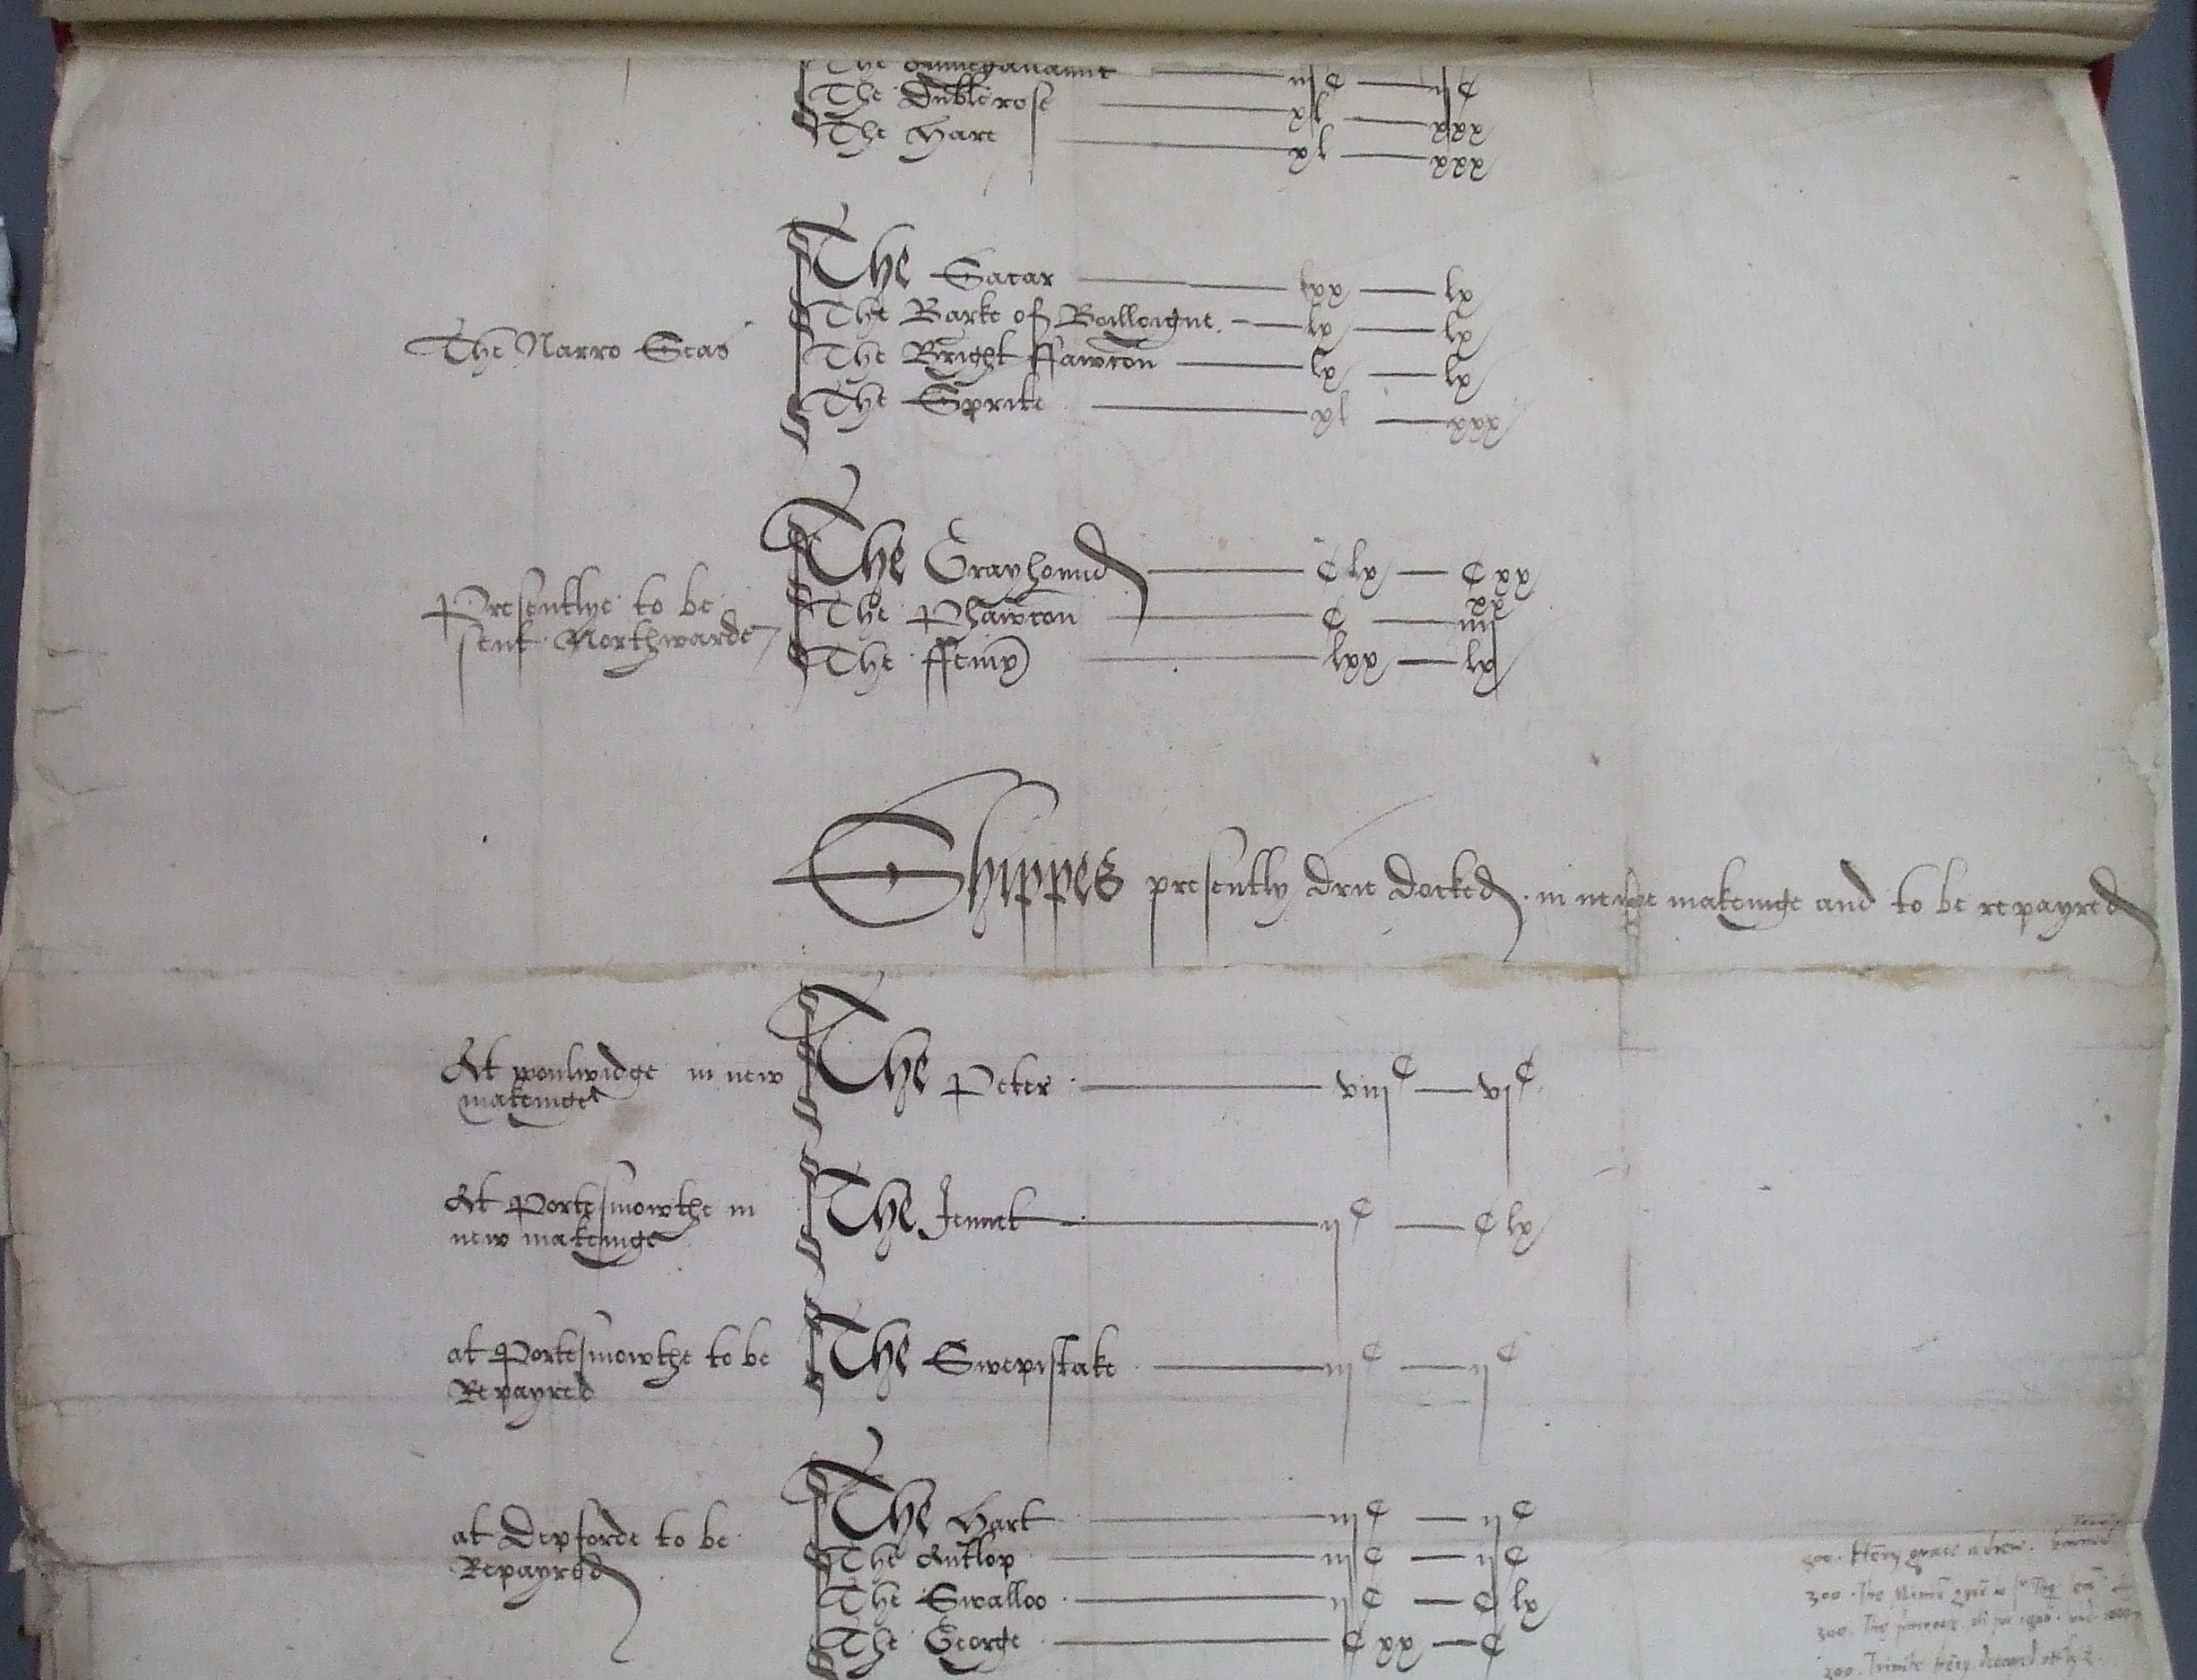 The
The Dublerose xl xxx
The Hare xl xxx
The Narro Seas
The Sacar lxx lx
The Barke of Boilloigne lx lx
The Bright ffawcon lx lx
The Sprite xl xxx
Presentlye to be
sent Northwarde
The Grayhound C lx C xx
The Phawcon C iiij xx
The ffenix lxx lx
Shippes presently drie docked in newe makeinge and to be repayred
At woulwidge in new
makeinge
The Peter viij C vj C
At Portesmowthe in
new makeinge
The Jennet ij C C lx
at Portesmowthe to be
Repayred
The Swepistake iij C ij C
at Depforde to be
Repayred
The Hart iij C ij C
The Antlop iij C ij C
The Swalloo ij C C lx
The George C xx C
500. Henry grace a
300. The
300. The
200.